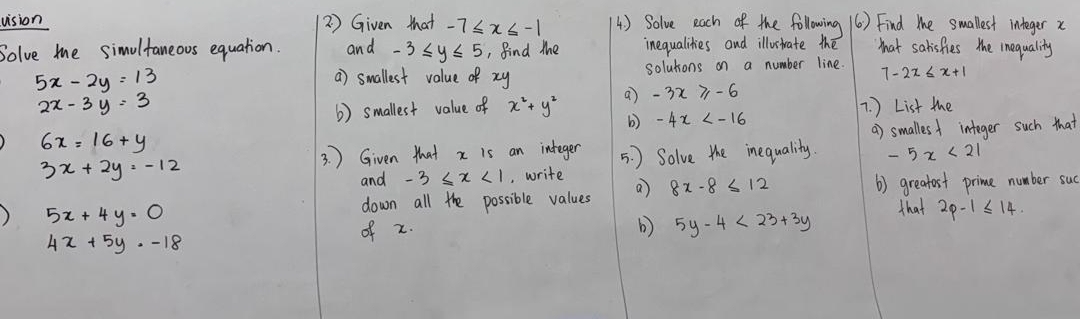 vision
Solve the simultaneous equation.
5x - 2y = 13
2x - 3y = 3
) 6x = 16 + y
3x + 2y = -12
) 5x + 4y = 0
4x + 5y = -18
2) Given that -7 ≤ x ≤ -1
and -3 ≤ y ≤ 5, find the
a) smallest value of xy
b) smallest value of x² + y²
3.) Given that x is an integer
and -3 ≤ x < 1, write
down all the possible values
of x.
4.) Solve each of the following
inequalities and illustrate the
solutions on a number line.
a) -3x ≥ -6
b) -4x < -16
5.) Solve the inequality.
a) 8x - 8 ≤ 12
b) 5y - 4 < 23 + 3y
6) Find the smallest integer x
that satisfies the inequality
7 - 2x ≤ x + 1
7.) List the
a) smallest integer such that
- 5x < 21
b) greatest prime number suc
that 2p - 1 ≤ 14.